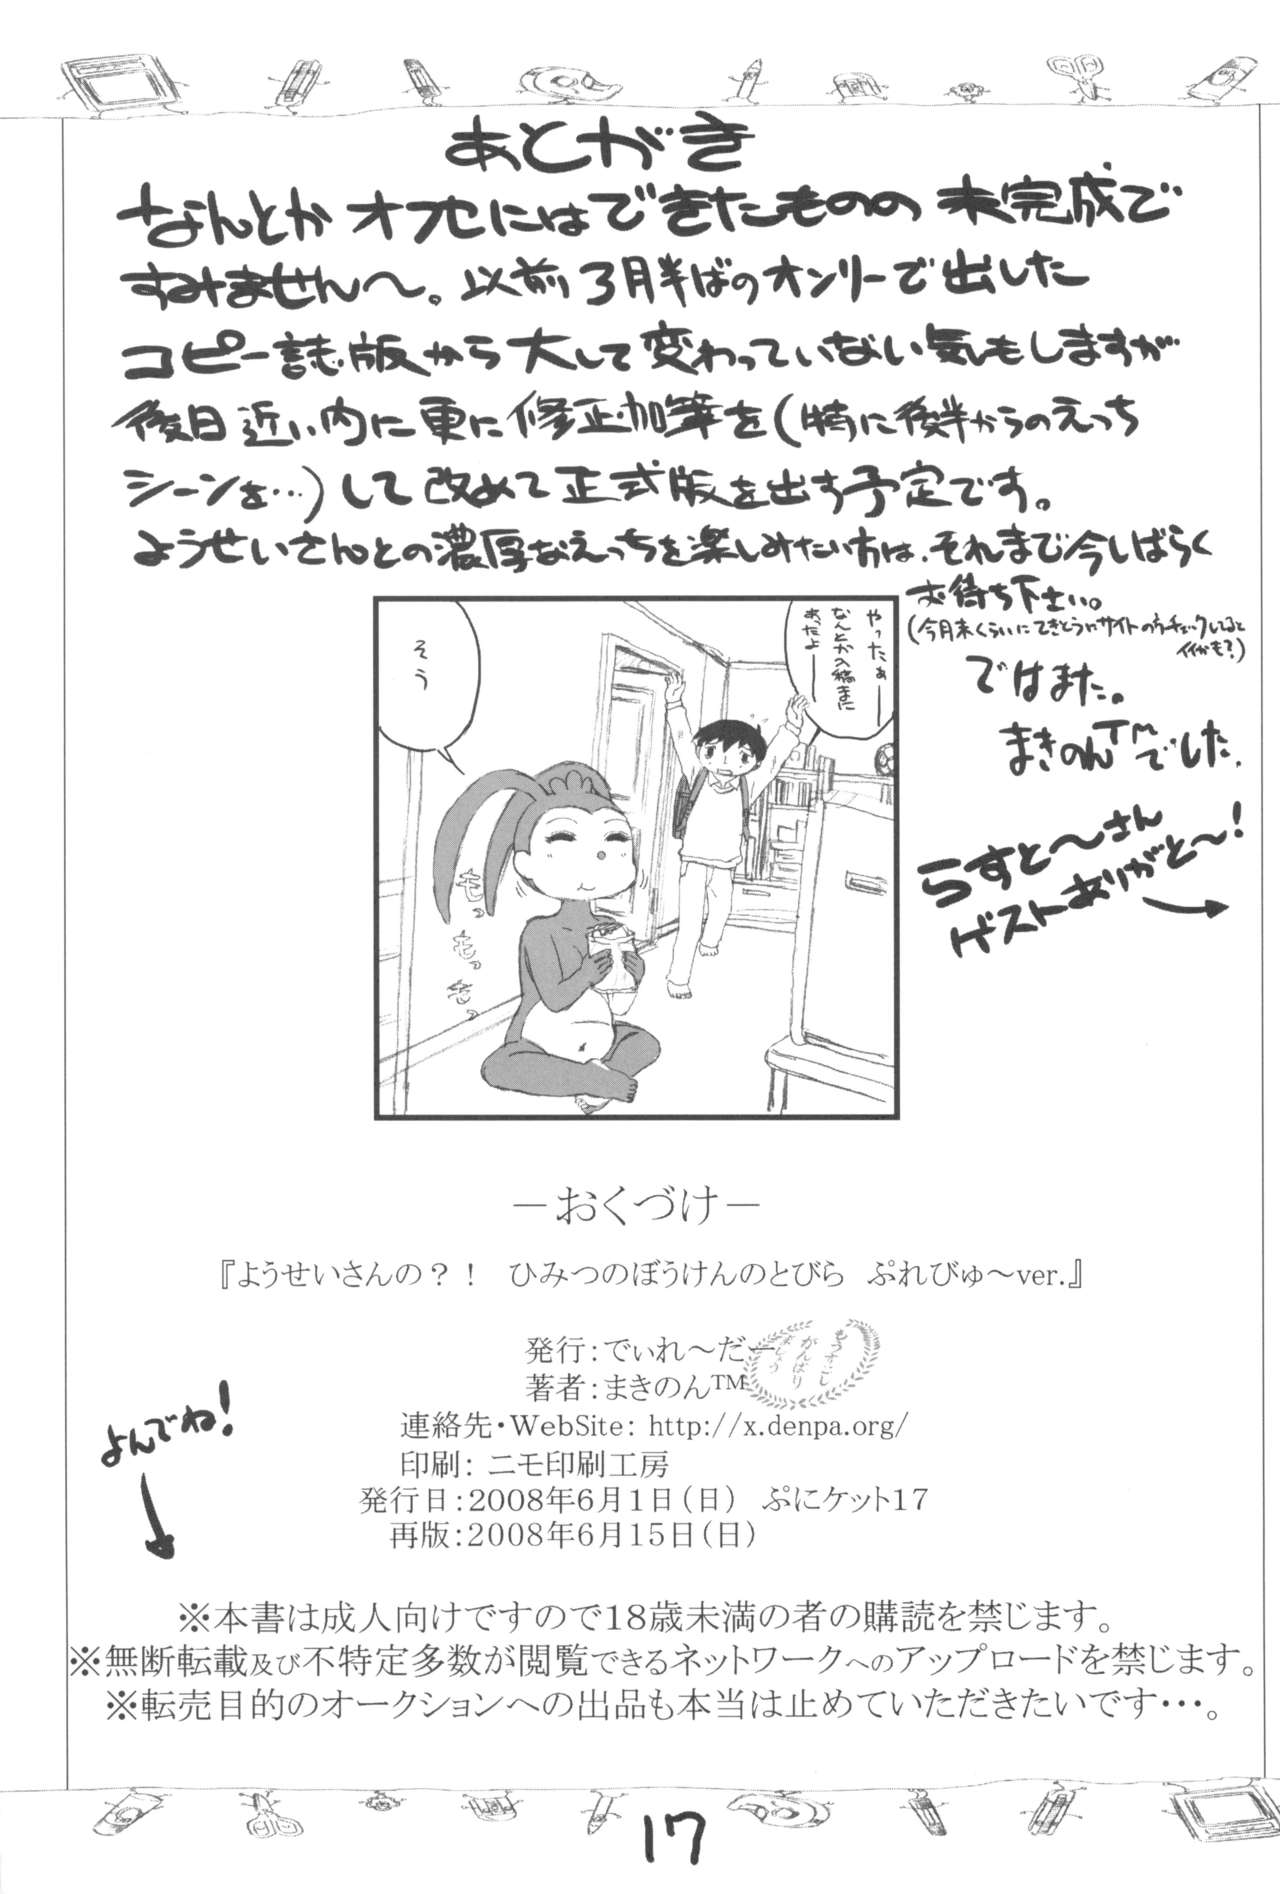 あとがき
なんとかオフセにはできたものの 未完成で
すみません〜。以前3月半ばのオンリーで出した
コピー誌版から大して変わっていない気もしますが
後日近い内に更に修正加筆を(特に後半からのえっち
シーンを…)して改めて正式版を出す予定です。
ようせいさんとの濃厚なえっちを楽しみたい方は、それまで今しばらく
お待ち下さい。
(今月末くらいにてきとうにサイトのぞいてチェックしてると
イイかも?)
ではまた。
まきのんTMでした。
らすと〜さん
ゲストありがと〜!
やったぁー
なんとか入稿まに
あったよー
そう
もっ
もっ
もっ
－おくづけ－
『ようせいさんの？！ ひみつのぼうけんのとびら ぷれびゅ〜ver.』
発行：でぃれ〜だー
著者：まきのん™
もうすこし
がんばり
ましょう
連絡先・WebSite: http://x.denpa.org/
印刷： ニモ印刷工房
発行日：2008年6月1日（日） ぷにケット17
再版：2008年6月15日（日）
よんでね!
※本書は成人向けですので18歳未満の者の購読を禁じます。
※無断転載及び不特定多数が閲覧できるネットワークへのアップロードを禁じます。
※転売目的のオークションへの出品も本当は止めていただきたいです・・・。
17